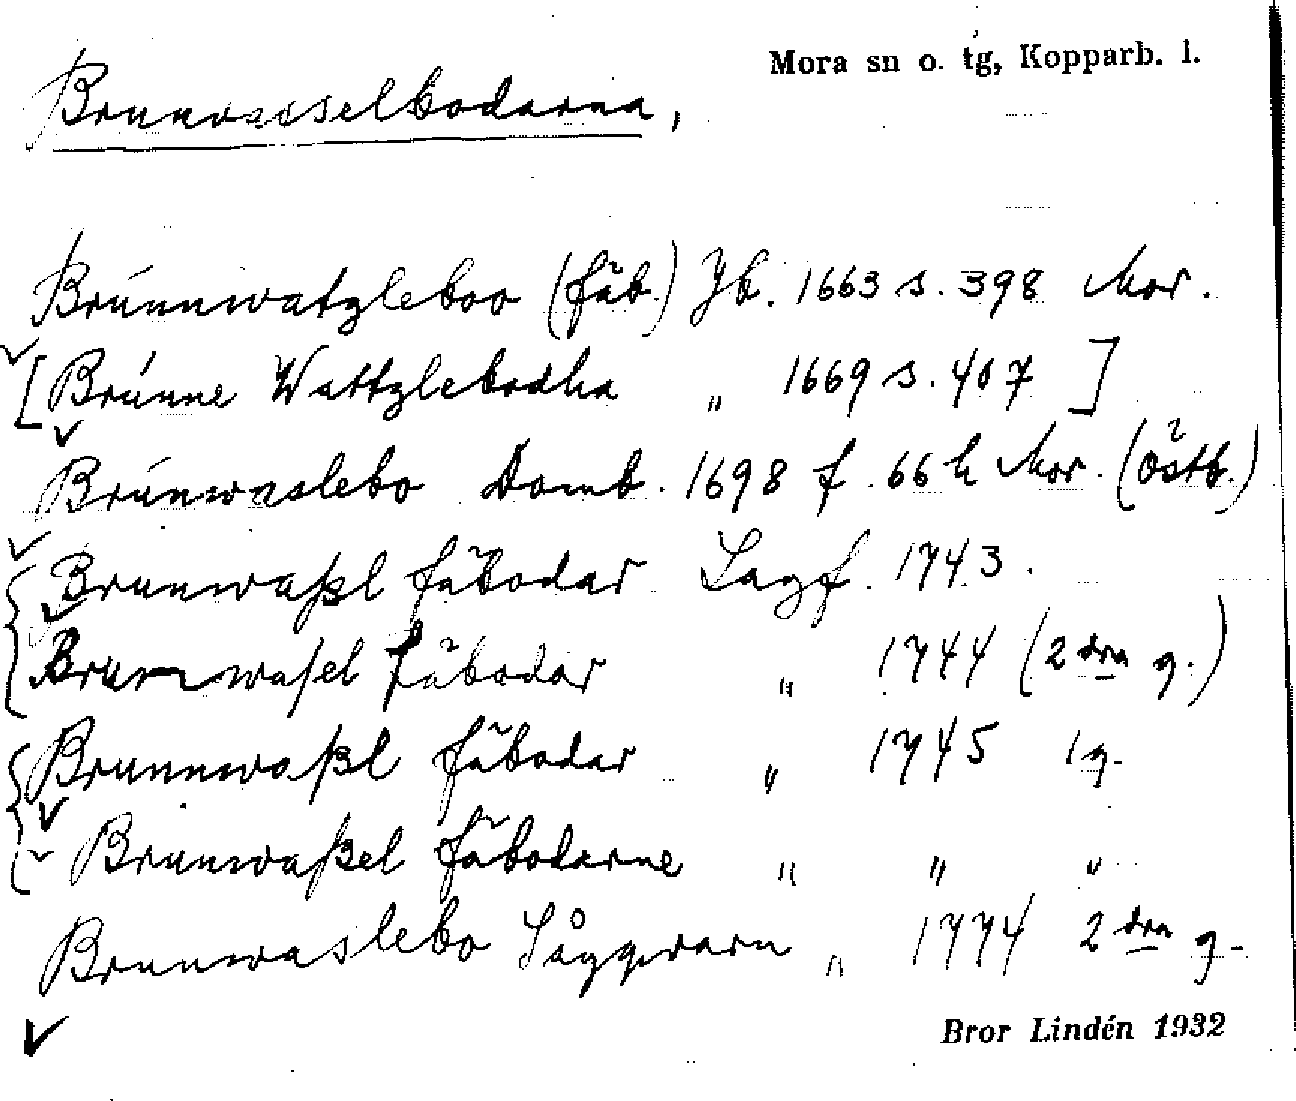 Mora sn o. tg, Kopparb. l.
Brunvasselbodarna,
Brúnnwatzleboo (fäb.) Jb. 1663 s. 398 Mor.
[Brúnne Wattzlebodha " 1669 s. 407 ]
Brúnwaslebo Domb. 1698 f. 66 h Mor. (Östb.)
Brunwaßl fäbodar Lagf. 1743.
Brunnwasel fäbodar " 1744 (2dra g.)
Brunnwaßl fäbodar " 1745 1 g.
Brunwaßel fäbodarne " " "
Brunwaslebo Låggvarn " 1774 2dra g.
Bror Lindén 1932